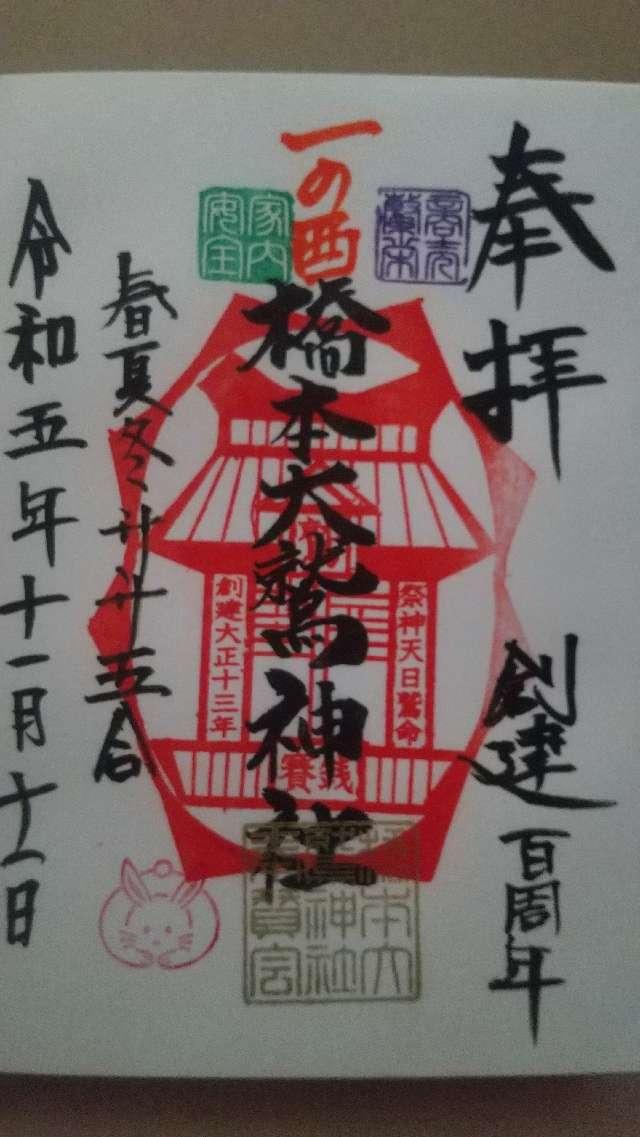 奉拝
創建百周年
商売
繁栄
一の酉
家内
安全
橋本大鷲神社
祭神天日鷲命
創建大正十三年
賽銭
春夏冬升升五合
令和五年十一月十一日